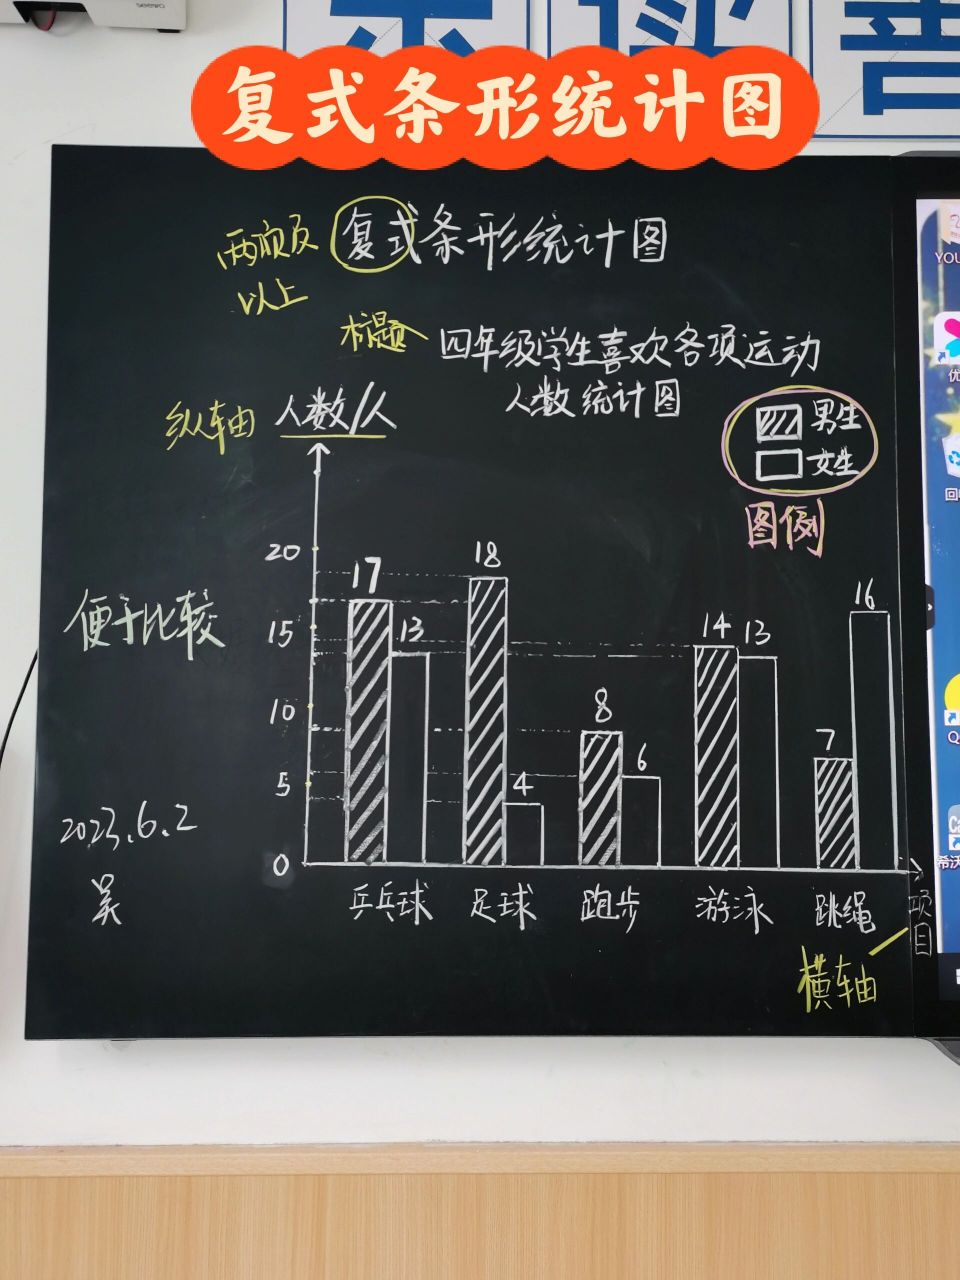 seewo
复式条形统计图
两项及
以上
复式条形统计图
标题
四年级学生喜欢各项运动
人数统计图
纵轴
人数/人
男生
女生
图例
便于比较
20
15
10
5
0
17
13
18
4
8
6
14
13
7
16
乒乓球
足球
跑步
游泳
跳绳
项目
横轴
2023.6.2
吴
YOU
优
回
Q
希沃